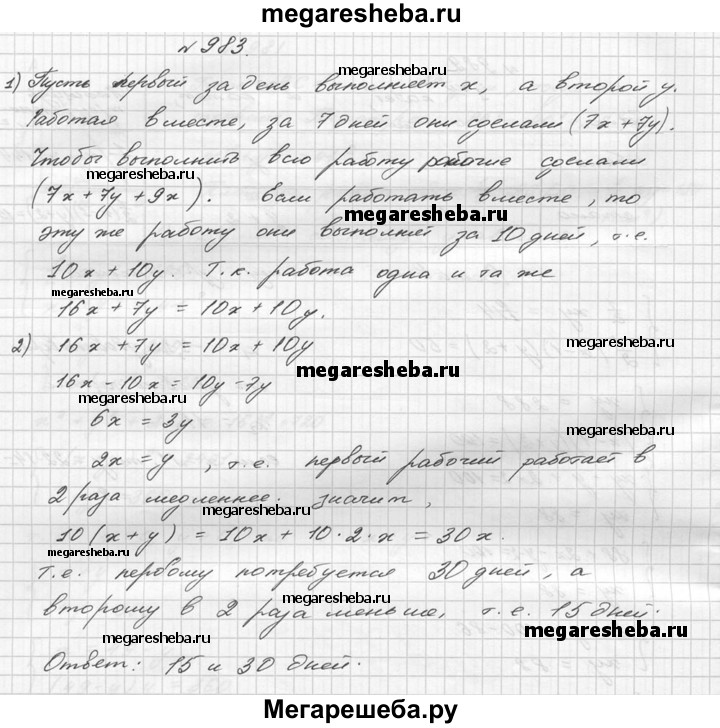 megaresheba.ru
№ 983.
1) Пусть первый за день выполняет x, а второй y.
megaresheba.ru
Работая вместе, за 7 дней они сделали (7x+7y).
Чтобы выполнить всю работу рабочие сделали
megaresheba.ru
(7x+7y+9x). Если работать вместе, то
megaresheba.ru
эту же работу они выполняй за 10 дней, т.е.
10x+10y. Т.к. работа одна и та же
megaresheba.ru
16x+7y = 10x+10y.
2) 16x+7y = 10x+10y
megaresheba.ru
16x-10x = 10y-7y
megaresheba.ru
6x = 3y
megaresheba.ru
2x = y, т.е. первый рабочий работает в
2 раза медленнее. значит,
megaresheba.ru
10(x+y) = 10x + 10·2·x = 30x.
megaresheba.ru
т.е. первому потребуется 30 дней, а
megaresheba.ru
второму в 2 раза меньше, т.е. 15 дней.
megaresheba.ru
megaresheba.ru
Ответ: 15 и 30 дней.
Мегарешеба.ру